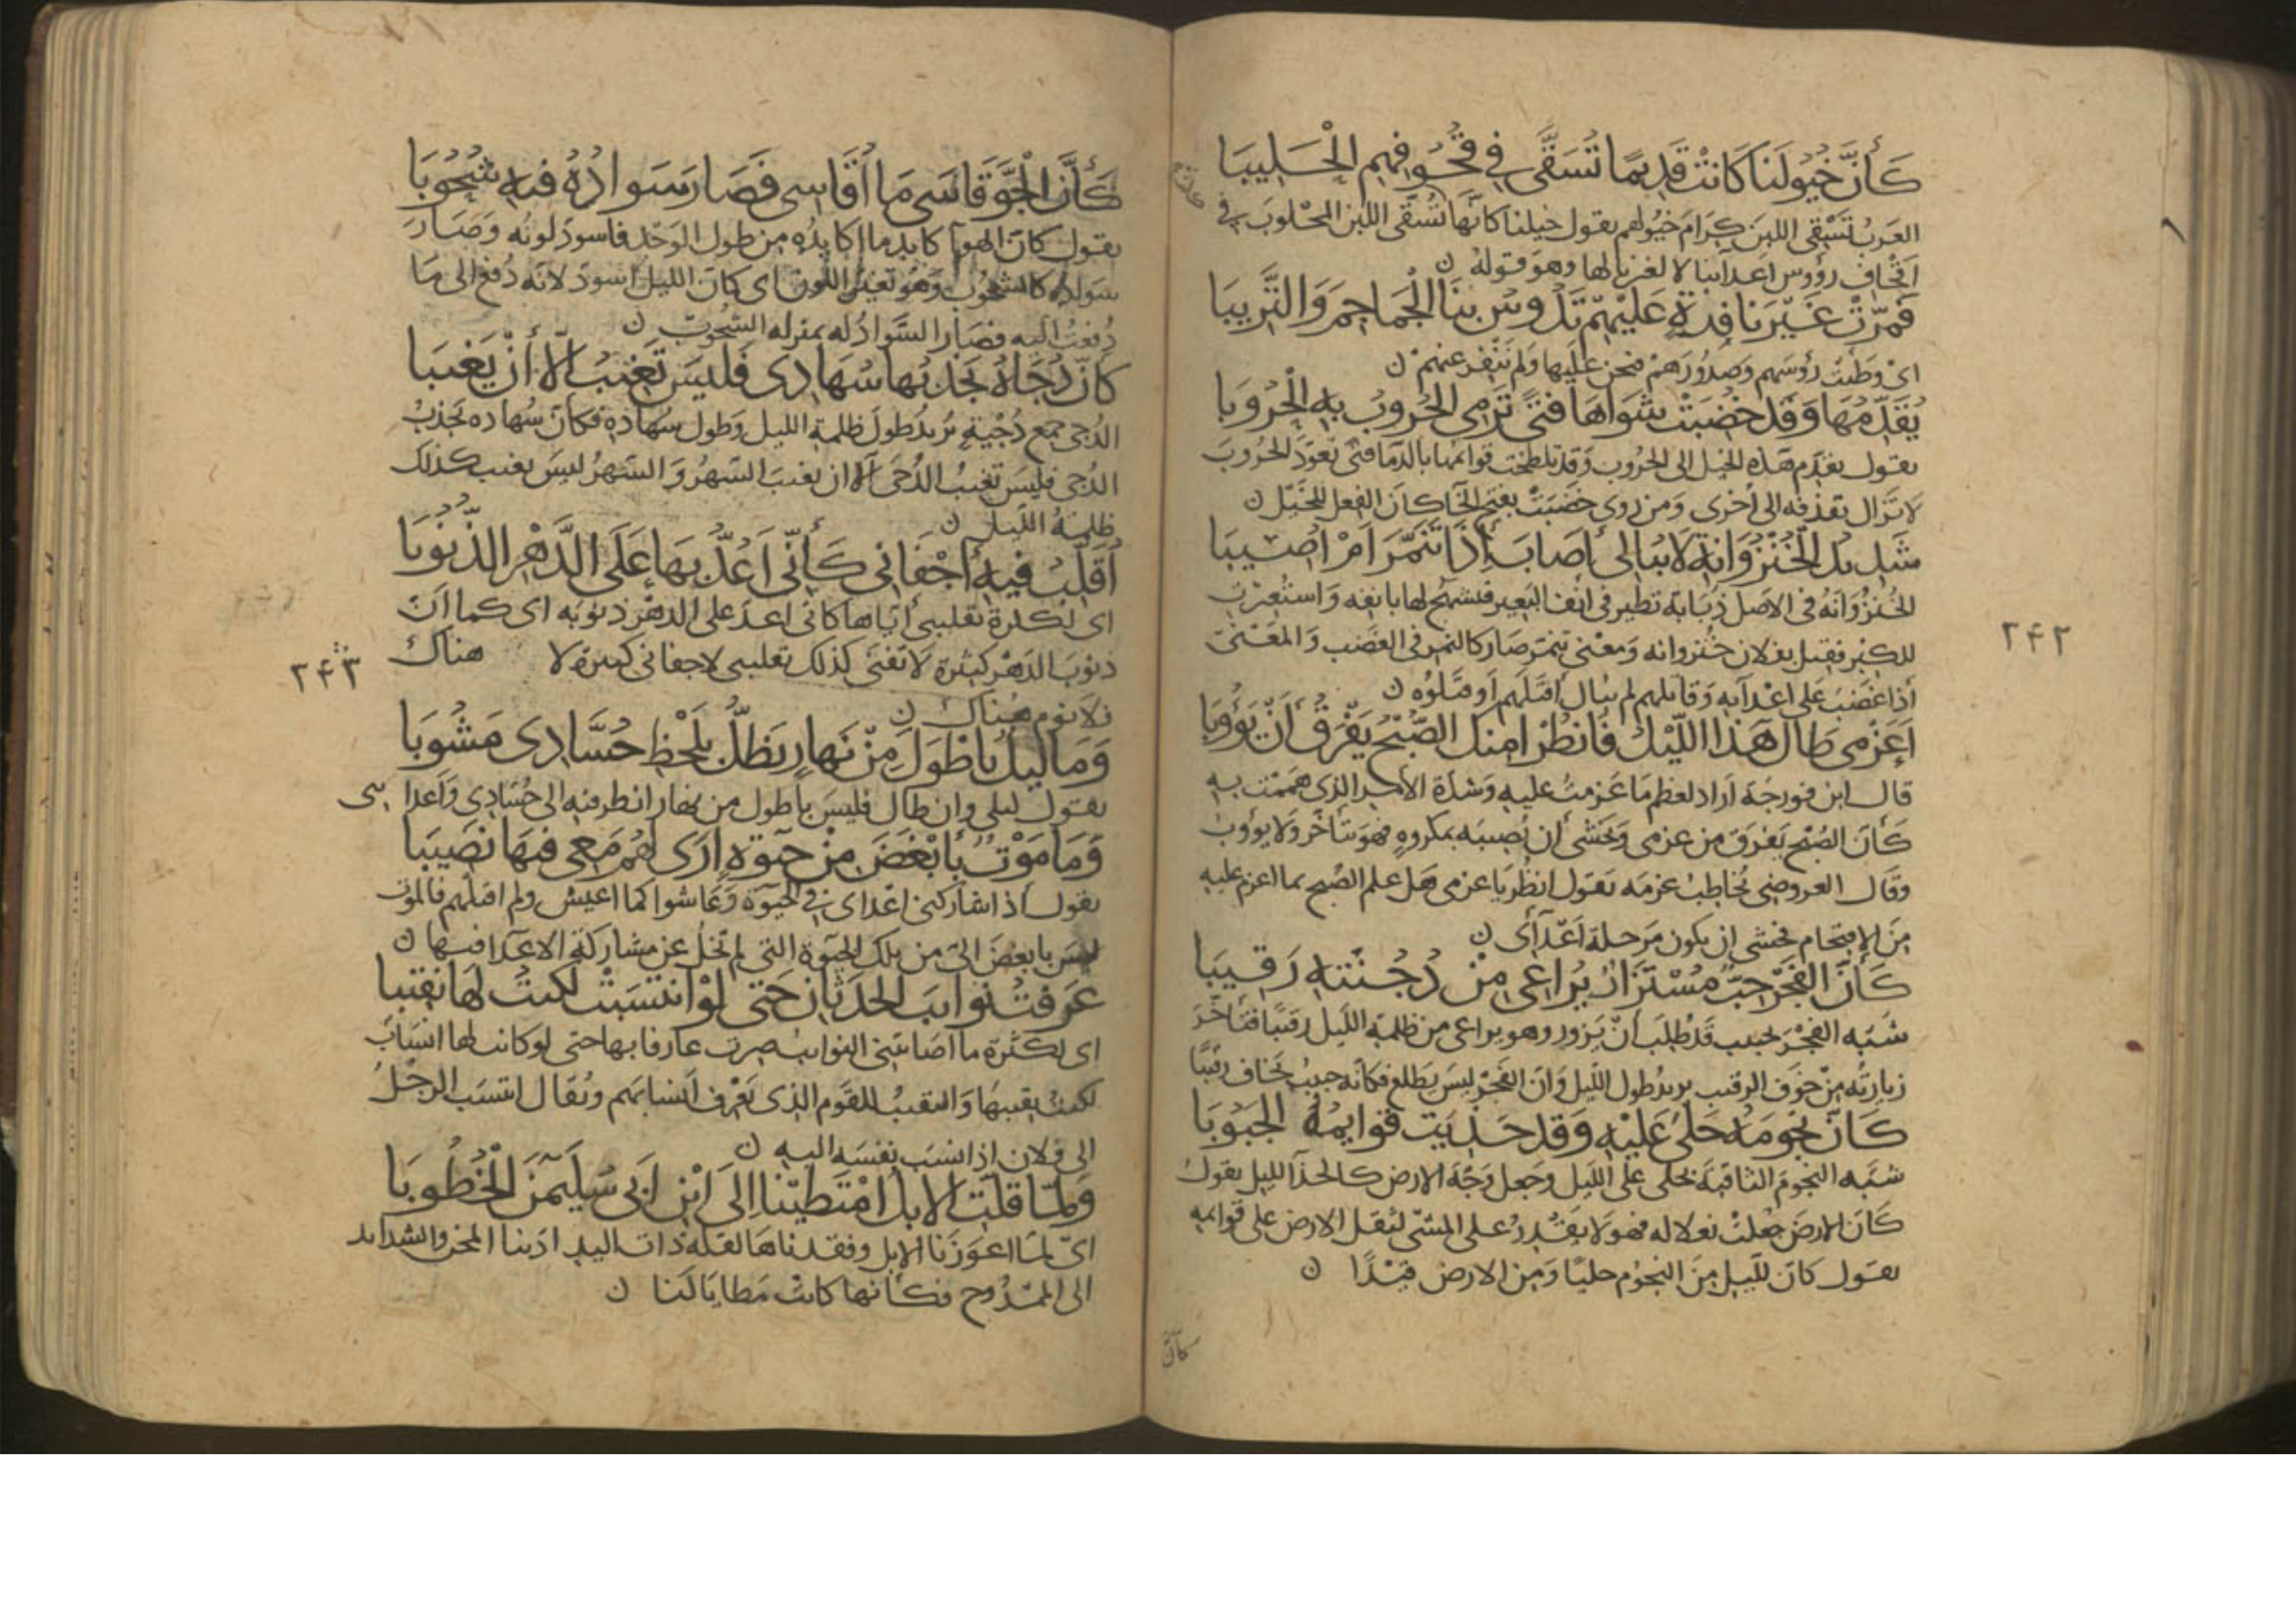 كَأَنَّ خُيُولَنَا كَانَتْ قَدِيمًا تُسَقَّى فِي قُحُوفِهِمِ الْحَلِيبَا
العَرَبُ تَسْقِي اللبنَ كِرَامَ خُيُولهم يقول خيلنا كانَّها تُسَقَّى اللبن المحْلوبَ في
اقحَاف رؤوس اعدآئنا لالفنا بها وهو قوله ن
فَمَرَّتْ غَيْرَ نَافِرَةٍ عَلَيْهِمْ تَدُوسُ بِنَا الْجَمَاجِمَ وَالتَّرِيبَا
اى وَطئت رؤسَهم وصدُورَهم ونحن علَيها وَلم تنْفِر عنهمْ ن
يُقَدِّمُهَا وَقَدْ خُضِبَتْ شَوَاهَا فَتًى تَرْمِي الْحُرُوبُ بِهِ الْحُرُوبَا
يقول يقدّم هَذه الخيل الى الحرُوب وَقد تلطخت قوائمها بالدمآ فتى تعوّد الحرُوبَ
لا تزال تقذفه الى أخرى وَمن روى خضَبَتْ بفتح الخآ كان الفعل للخَيْل ن
شَدِيدُ الْخُنْزُوَانَةِ لَا يُبَالِي أَصَابَ إِذَا تَنَمَّرَ أَمْ أُصِيبَا
الخُنزُوَانَهُ فى الاصل ذبَابَة تطير فى انف البَعِير فيشمخ لها بانفه وَاستُعيْرت
للكِبْر فقيل بفلان خنزوانه وَمعْنى تنمّر صَار كالنمر فى الغضب وَالمعْنىَ
أذا غضبَ على اعْدآيه وَقاتلهم لم يبَال أقتَلَهم أو قتلوُه ن
أَعَزْمِي طَالَ هَذَا اللَّيْلُ فَانْظُرْ أَمِنْكَ الصُّبْحُ يَفْرَقُ أَنْ يَؤُوبَا
قال ابن فورجَة أراد لعظم مَا عَزمتُ عليه وَشدّة الأمر الذى هَممْت به
كَأنَّ الصُبْح يَفرَق من عزمى وَيخشى أن يُصيبَه بمكروهٍ فهوَ يتأخّر وَلا يؤوبُ
وقال العروضى يُخاطبُ عزمَه يقول انظُر يَا عزمى هَل علم الصُبح بما اعزم عليه
مِن الإقتحَام فخشى ان يكون مِن جملة اعْدآئى ن
كَأَنَّ الْفَجْرَ حِبٌّ مُسْتَزَارٌ يُرَاعِي مِنْ دُجُنَّتِهِ رَقِيبَا
شَبَّه الفجْرَ بحبيب قَدْ طُلبَ انْ يَزور وهو يراعى من ظلمة اللَيل رقيبًا فتَأخّرَ
زيارتهُ مِنْ خوَفِ الرقيب يريدُ طول اللَيل وَانّ الفجْر ليسَ يطلع فكانّه حبيبٌ يخَاف رقيبًا
كَأَنَّ نُجُومَهُ حَلْيٌ عَلَيْهِ وَقَدْ حُذِيَتْ قَوَائِمُهُ الْجَبُوبَا
شبَّه النجومَ الثاقبَة بحَلى على اللَيل وجعل وَجْهَ الارض كالحذآ لليل يقولُ
كَانّ الارضَ جُعلتْ نعلا له فهو لا يقْدِرُ على المشى لثقل الارض على قوائمه
يقول كانَ للّيل مِنَ النجوُم حليًا وَمِن الارض قيْدًا ن
٢٤٢
كأنّ
كَأَنَّ الْجَوَّ قَاسَى مَا أُقَاسِي فَصَارَ سَوَادُهُ فِيهِ شُحُوبَا
يقول كان الهوآ كابد ما اكابدُه من طول الوَجْد فاسودّ لونُه وَصَارَ
سوادُه كالشحوُب وهو تغيّر اللون اى كانَ الليل اسودّ لانّه دُفع الى مَا
دُفعتُ اليه فصَار السَّوادُ له بمنزله الشحُوب ن
كَأَنَّ دُجَاهُ يَجْذِبُهَا سُهَادِي فَلَيْسَ تَغِيبُ إِلَّا أَنْ يَغِيبَا
الدُجى جمع دُجْيَةٍ يريدُ طولَ ظلمة الليل وَطول سُهادِه فكانّ سُهاده يَجذبُ
الدُجى فليسَ تغيبُ الدُّجى إلّا ان يغيبَ السّهرُ وَ السّهرُ ليسَ يغيب كذلك
ظلمةُ اللَيل ن
أُقَلِّبُ فِيهِ أَجْفَانِي كَأَنِّي أَعُدُّ بِهَا عَلَى الدَّهْرِ الذُّنُوبَا
اى لكثرة تقليبى ايّاها كانى اعدّ على الدهْر ذنوبَه اى كما انّ
ذنوبَ الدَهْر كثيرَة لا تفنَى كذلك تقليبى لاجفانى كثيرة لا هناك
فلا نوم هُناك ن
٢٤٣
وَمَا لَيْلٌ بِأَطْوَلَ مِنْ نَهَارٍ يَظَلُّ بِلَحْظِ حُسَّادِي مَشُوبَا
يقول ليلى وان طال فليسَ بأطول من نهار انظر فيه الى حُسّادى وَاعدا ئى
وَمَا مَوْتٌ بِأَبْغَضَ مِنْ حَيٰوةٍ أَرَى لَهُمُ مَعِي فِيهَا نَصِيبَا
يقول اذا شاركنى اعْداى فى الحيٰوة وَعَاشوا كما اعيش ولم اقتلهم فالموت
ليسَ بابغضَ الىّ من تلك الحيٰوة التى لم تخلُ عن مشاركة الاعدآ فيها ن
عَرَفْتُ نَوَائِبَ الْحَدَثَانِ حَتَّى لَوِ انْتَسَبَتْ لَكُنْتُ لَهَا نَقِيبَا
اى لكَثرة ما اصَابتنى النوائب صرت عارفا بها حتى لو كانت لها انسَابٌ
لكنتُ نقيبهَا وَالنقيبُ للقَوم الذى يَعْرف انسَابَهم ويُقال انتسَب الرجُلُ
الى فلان إذا نسَب نفسَه اليه ن
وَلَمَّا قَلَّتِ الْإِبِلُ امْتَطَيْنَا إِلَى ابْنِ أَبِي سُلَيْمٰنَ الْخُطُوبَا
اىْ لمّا اعوَزَنا الإبل وفقدناهَا لقلة ذات اليد ادَتنا المحن والشدايد
الى الممْدُوح فكأنها كانتْ مَطايَا لَنا ن